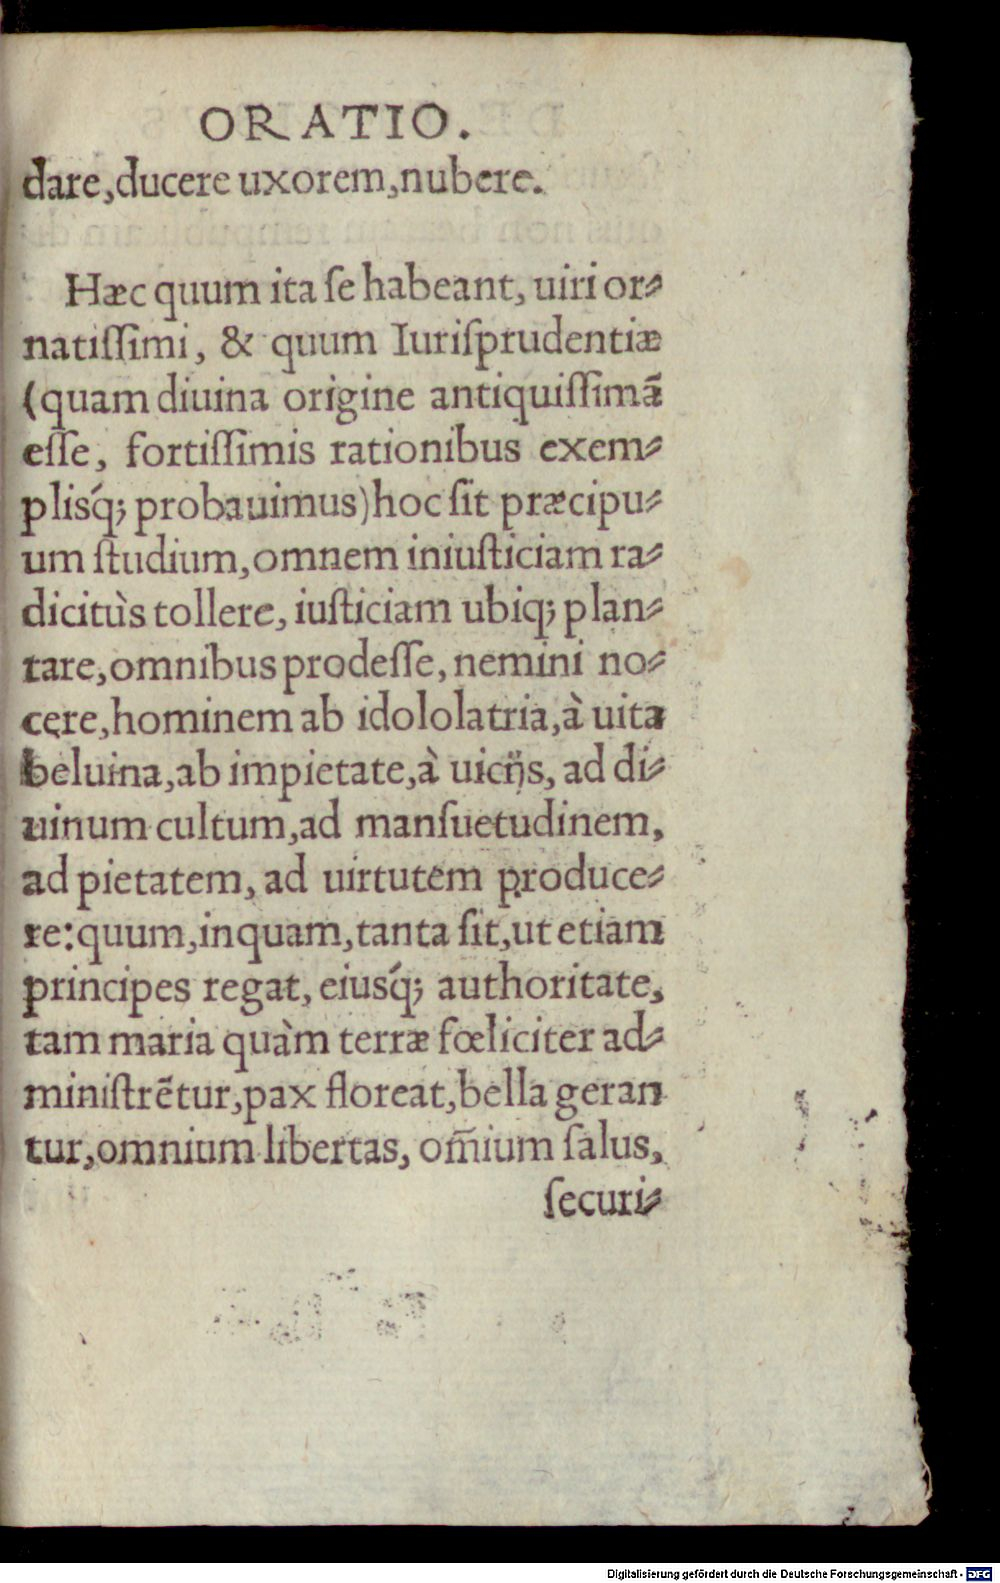 ORATIO.
dare,ducere uxorem,nubere.
Hæc quum ita se habeant, uiri or⸗
natiſſimi, & quum Iuriſprudentiæ
(quam diuina origine antiquiſſimã
eſſe, fortiſſimis rationibus exem⸗
plisq́; probauimus)hoc ſit præcipu⸗
um ſtudium,omnem iniuſticiam ra⸗
dicitùs tollere, iuſticiam ubiq; plan⸗
tare,omnibus prodeſſe, nemini no⸗
cere,hominem ab idololatria,à uita
beluina,ab impietate,à uicijs, ad di⸗
uinum cultum,ad manſuetudinem,
ad pietatem, ad uirtutem produce⸗
re:quum,inquam,tanta ſit,ut etiam
principes regat, eiusq́; authoritate,
tam maria quàm terræ fœliciter ad⸗
miniſtrẽtur,pax floreat,bella geran
tur,omnium libertas, om̃ium ſalus,
ſecuri⸗
Digitalisierung gefördert durch die Deutsche Forschungsgemeinschaft - DFG